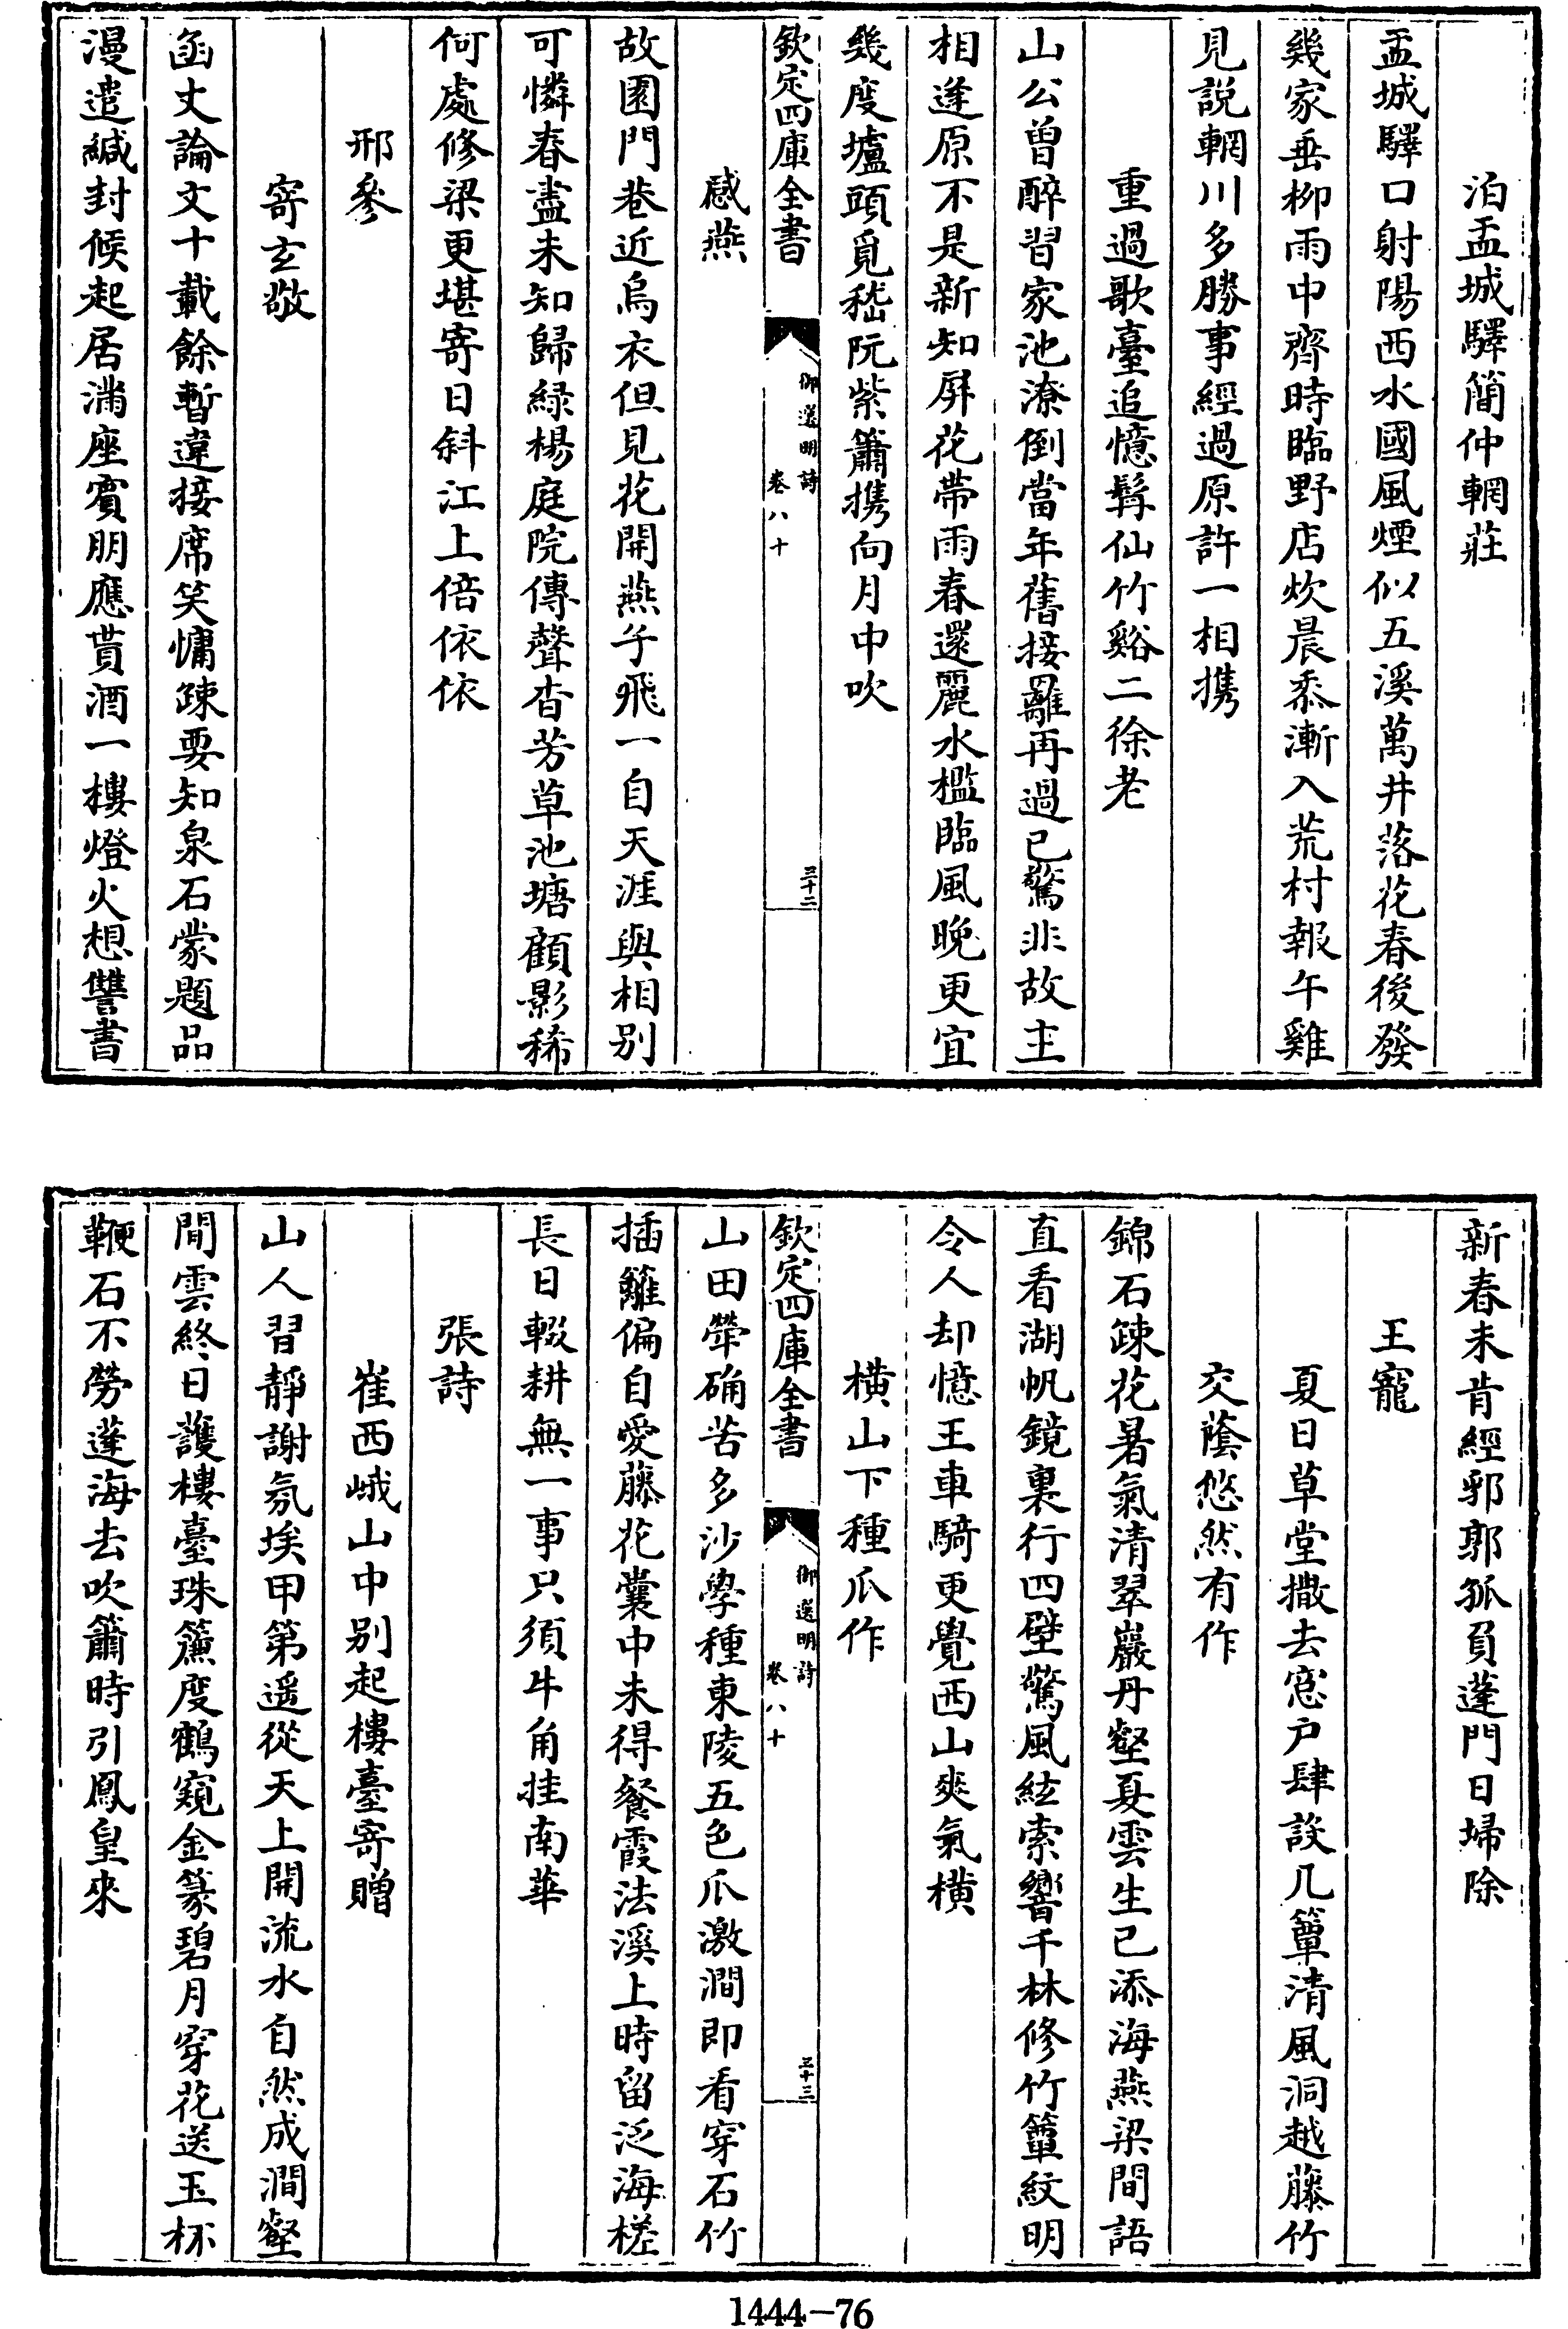 泊盂城驛簡仲輞莊
盂城驛口射陽西水國風煙似五溪萬井落花春後發
幾家垂柳雨中齊時臨野店炊晨黍漸入荒村報午雞
見説輞川多勝事經過原許一相攜
重過歌臺追憶髯仙竹谿二徐老
山公曽醉習家池潦倒當年舊接䍦再過已驚非故主
相逢原不是新知屏花帶雨春還麗水檻臨風晚更宜
幾度壚頭覓嵇阮紫簫攜向月中吹
欽定四庫全書
御選明詩
卷八十
三十二
感燕
故園門巷近烏衣但見花開燕子飛一自天涯與相别
可憐春盡未知歸緑楊庭院傳聲杳芳草池塘顧影稀
何處修梁更堪寄日斜江上倍依依
邢參
寄玄敬
函丈論文十載餘暫違接席笑慵疎要知泉石蒙題品
漫遣緘封候起居滿座賓朋應貰酒一樓燈火想讐書
新春未肯經郛郭孤負蓬門日埽除
王寵
夏日草堂撒去窓户肆設几簟清風洞越藤竹
交蔭悠然有作
錦石疎花暑氣清翠巖丹壑夏雲生已添海燕梁間語
直看湖帆鏡裏行四壁驚風絃索響千林修竹簟紋明
令人却憶王車騎更覺西山爽氣横
横山下種瓜作
欽定四庫全書
御選明詩
卷八十
三十三
山田犖确苦多沙學種東陵五色瓜激澗即看穿石竹
插籬偏自愛藤花囊中未得餐霞法溪上時留泛海槎
長日輟耕無一事只須牛角挂南華
張詩
崔西峨山中别起樓臺寄贈
山人習靜謝氛埃甲第遥從天上開流水自然成澗壑
閒雲終日護樓臺珠簾度鶴窺金篆碧月穿花送玉杯
鞭石不勞蓬海去吹簫時引鳳皇來
1444-76